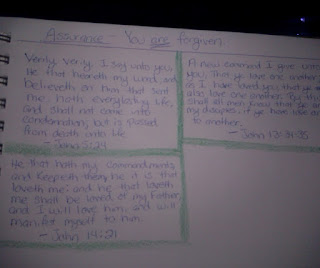 Assurance - You are forgiven.
Verily, verily, I say unto you,
He that heareth my word, and
believeth on Him that sent
me, hath everlasting life,
and shall not come into
condemnation; but is passed
from death unto life.
- John 5:24
A new command I give unto
you, That ye love one another;
as I have loved you, that ye
also love one another. By this
shall all men know that ye are
my disciples, if ye have love one
to another.
- John 13:34-35
He that hath my commandments,
and keepeth them, he it is that
loveth me: and he that loveth
me shall be loved of my Father,
and I will love him, and will
manifest myself to him.
- John 14:21